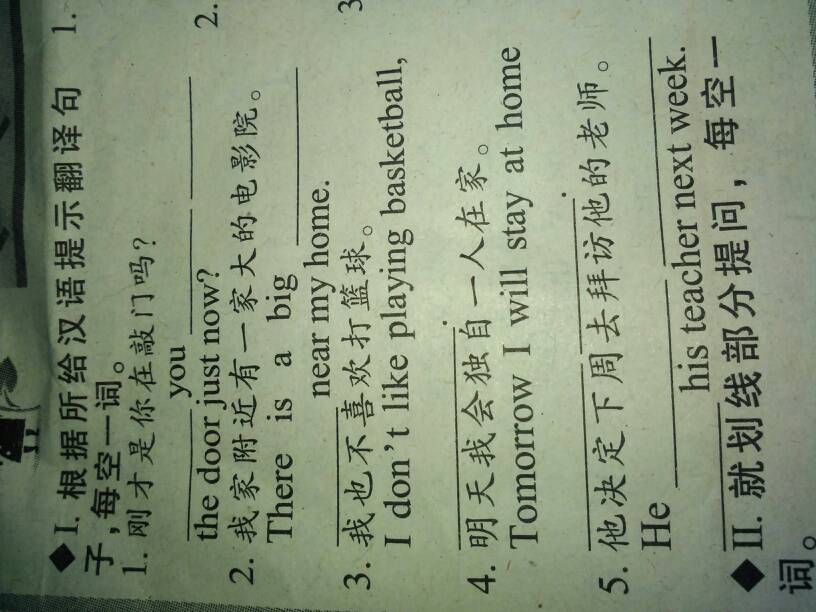 ◆I. 根据所给汉语提示翻译句
子,每空一词。
1. 刚才是你在敲门吗?
______ you ______ ______
the door just now?
2. 我家附近有一家大的电影院。
There is a big ______
______ near my home.
3. 我也不喜欢打篮球。
I don't like playing basketball,
______.
4. 明天我会独自一人在家。
Tomorrow I will stay at home
______.
5. 他决定下周去拜访他的老师。
He ______ ______
______ his teacher next week.
◆II. 就划线部分提问，每空一
词。
1.
2.
3